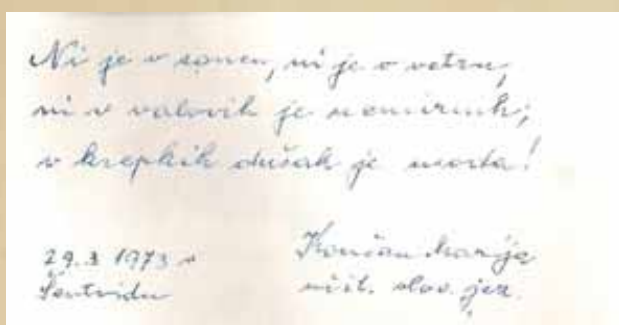 Ni je v soncu, ni je v vetru,
ni v valovih je nemirnih;
v krepkih dušah je usoda!
29.3 1973 v Končan Marija
Šentvidu učit. slov. jez.